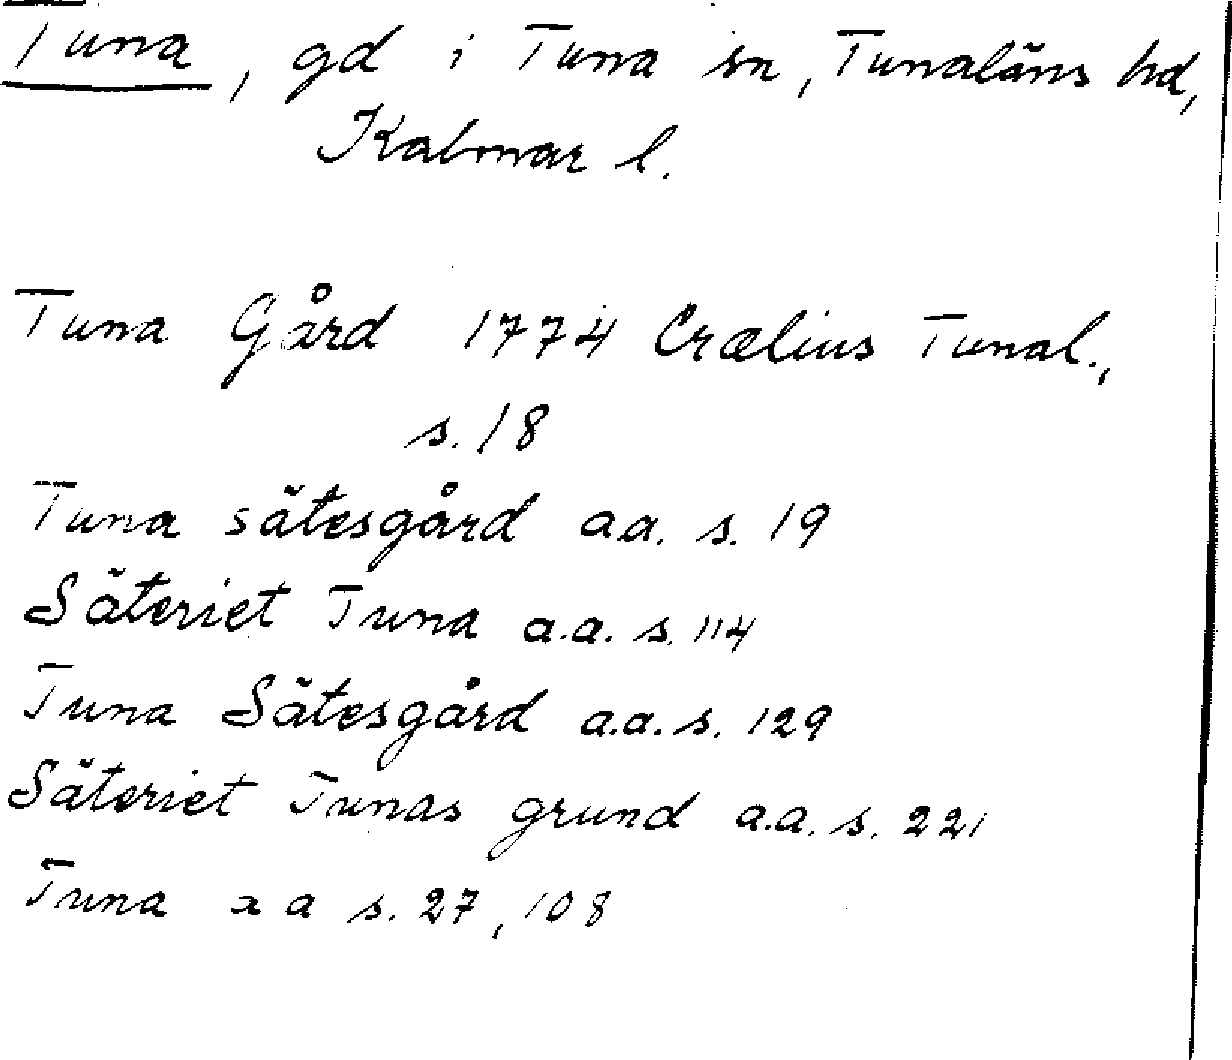 Tuna, gd i Tuna sn, Tunaläns hd,
Kalmar l.
Tuna Gård 1774 Crælius Tunal.,
s. 18
Tuna sätesgård a.a. s. 19
Säteriet Tuna a.a. s. 114
Tuna Sätesgård a.a. s. 129
Säteriet Tunas grund a.a. s. 221
Tuna a a s. 27, 108